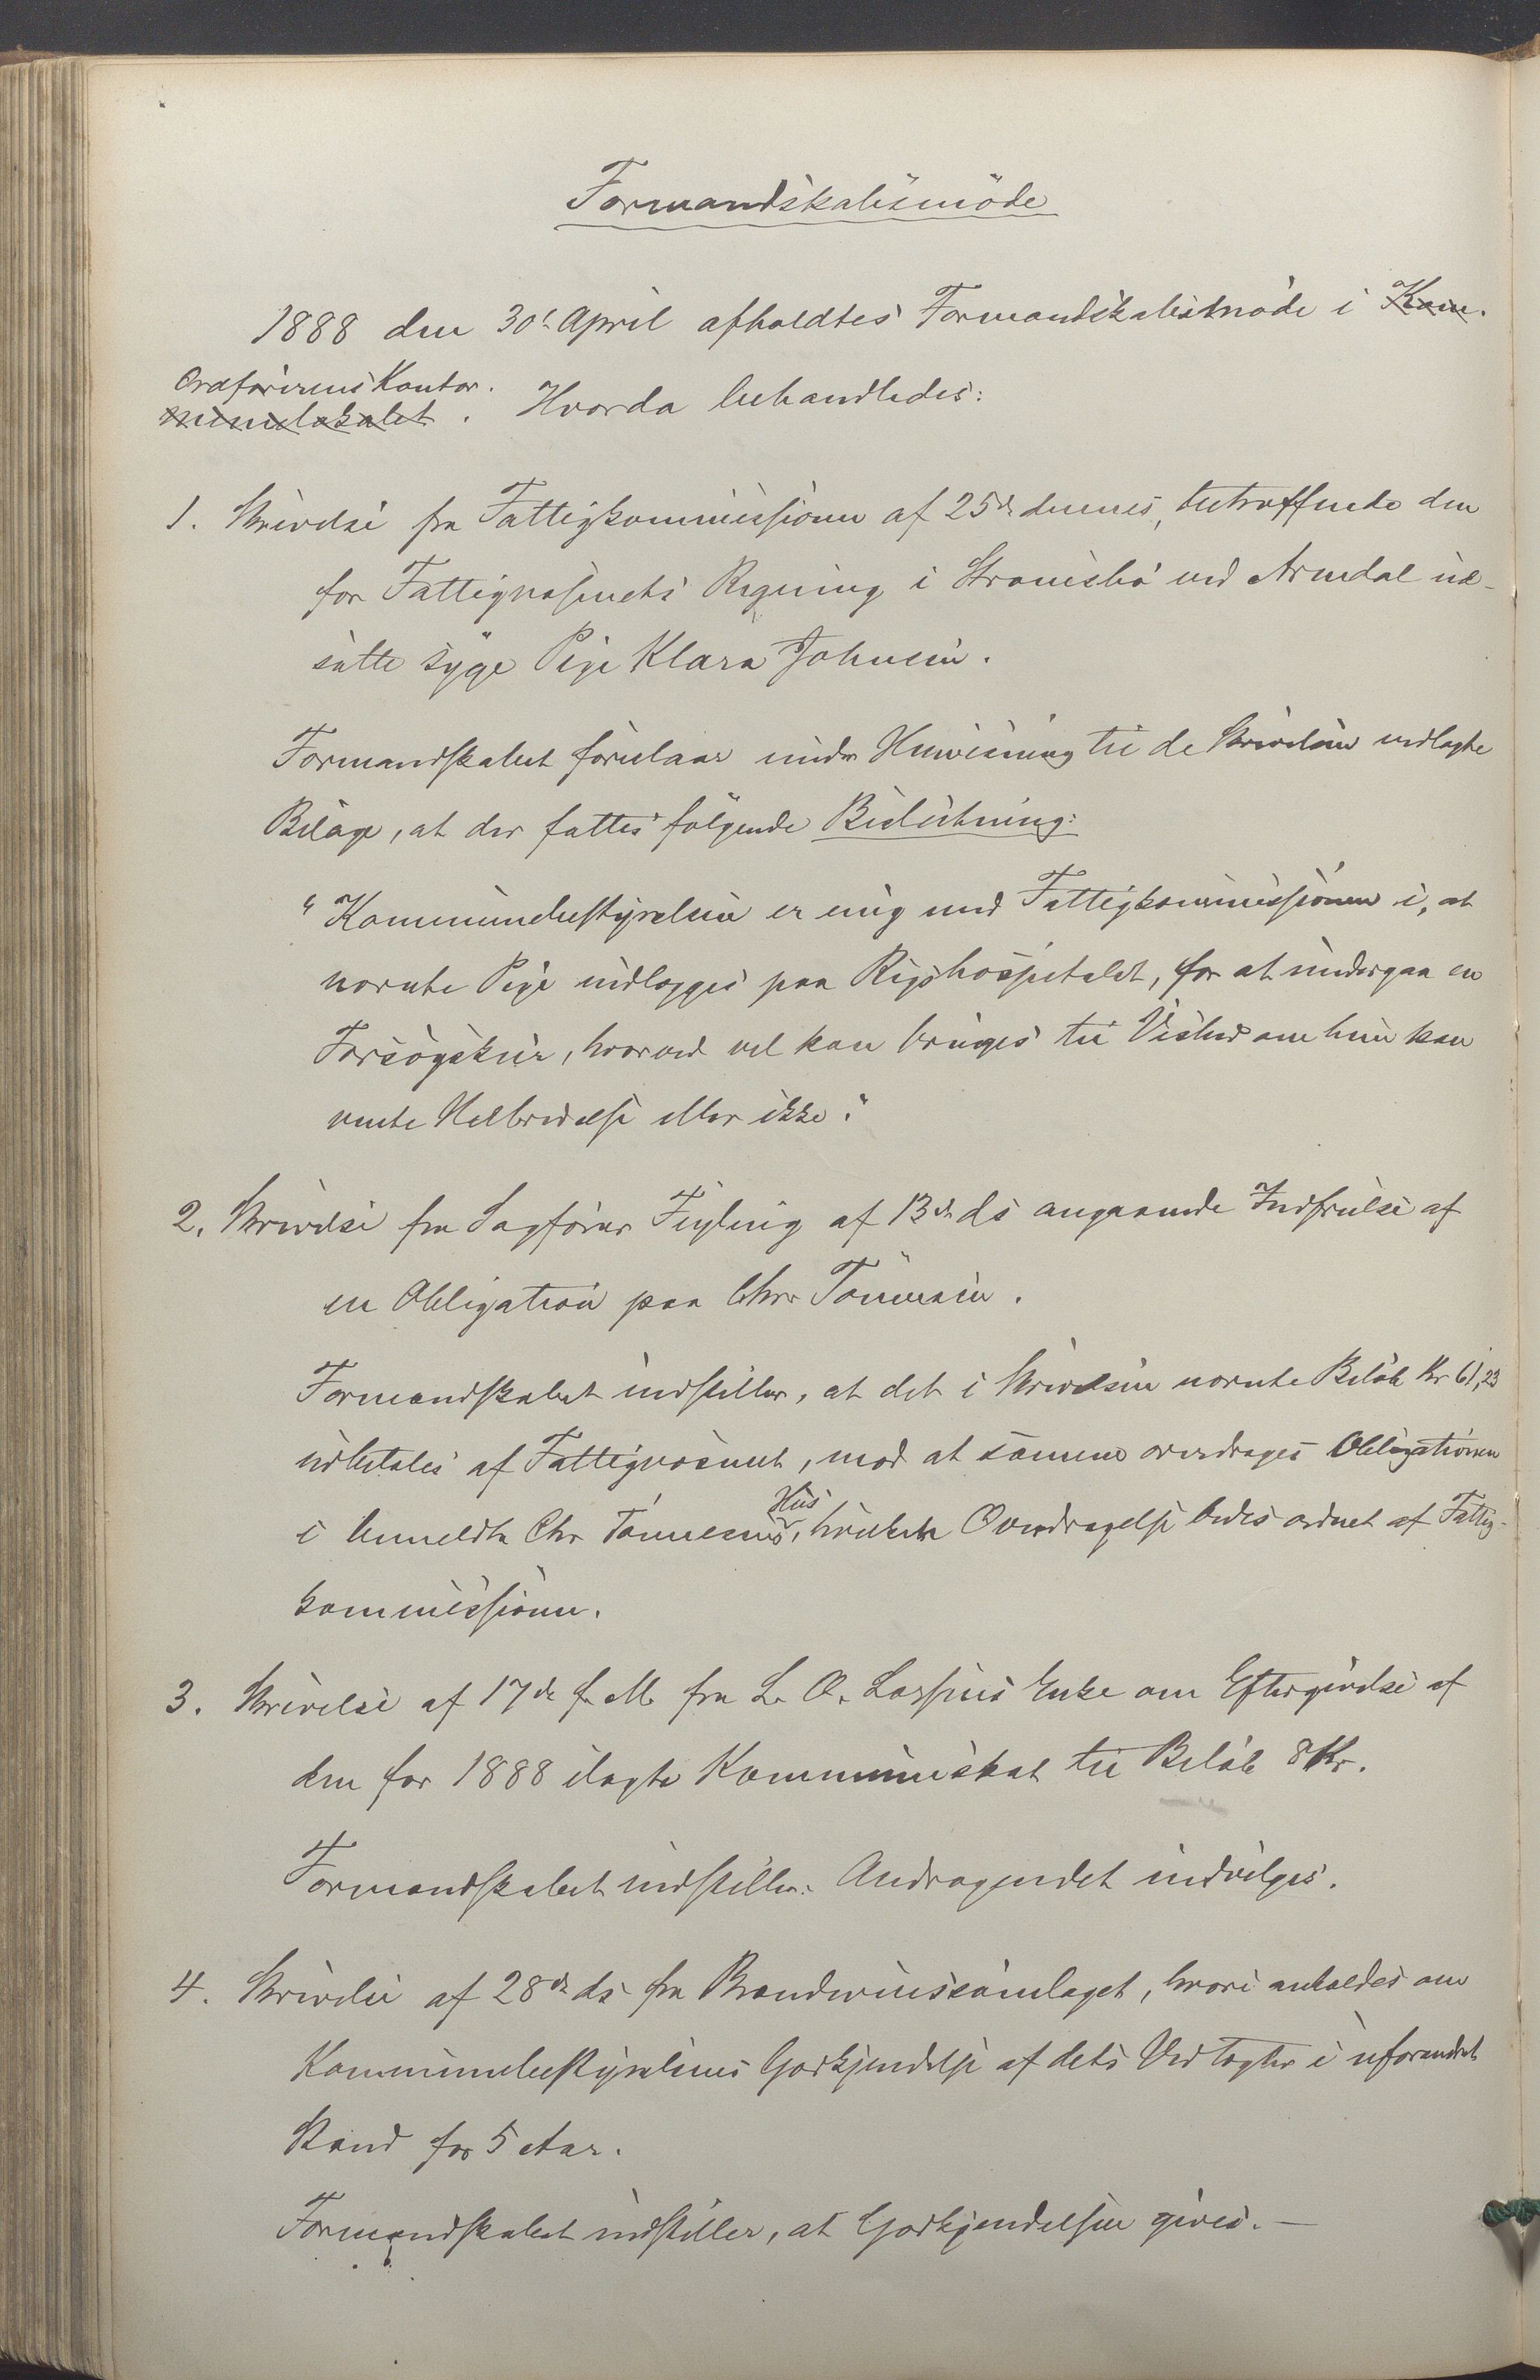 Formandskabsmöde
1888 den 30t April afholdtes Formandskabsmöde i Kom-
Ordförerens Kontor.
munelokalet. Hvorda behandledes:
1. Skrivelse fra Fattigkommissionen af 25de dennes, betræffende den
for Fattigvæsenets Regning i Strømsbo ved Arendal ud-
satte syge Pige Klara Johnsen.
Formandskabet foreslaar under Henvisning til de Skrivelsen vedlagte
Bilage, at der fattes følgende Beslutning:
"Kommunebestyrelsen er enig med Fattigkommissionen i, at
nævnte Pige indlægges paa Rigshospitalet, for at undergaa en
Forsøgskur, hvorved vel kan bringes til Vished om hun kan
vente Helbredelse eller ikke."
2. Skrivelse fra Sagfører af 13de ds angaaende Indfrielse af
en Obligation paa Chr Tönnesen.
Formandskabet indstiller, at det i Skrivelsen nævnte Beløb Kr 61,23
udbetales af Fattigvæsenet, mod at samme overdrages Obligationen
Hus
i bemeldte Chr Tönnesens, hvilken Overdragelse bedes ordnet af Fattig-
kommissionen.
3. Skrivelse af 17de f. M. fra L. O. Larsens Enke om Eftergivelse af
den for 1888 ilagte Kommuneskat til Beløb 8 Kr.
Formandskabet indstiller: Andragendet indvilges.
4. Skrivelse af 28de ds fra Brændevinssamlaget, hvori anholdes om
Kommunebestyrelsens Godkjendelse af dets Vedtægter i uforandret
Stand for 5 Aar.
Formandskabet indstiller, at Godkjendelsen gives. —